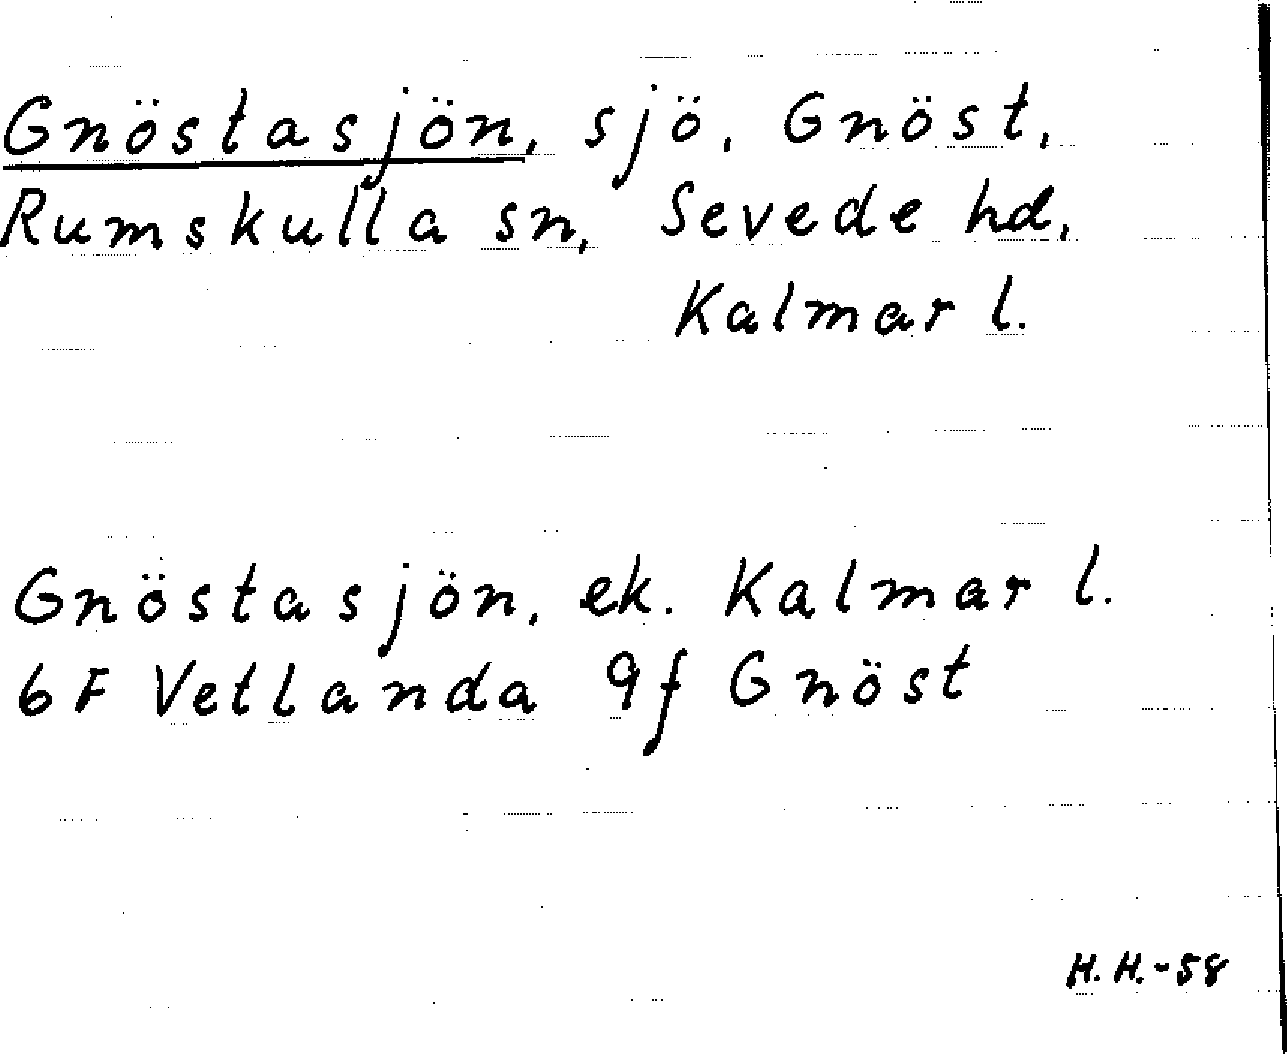 Gnöstasjön, sjö, Gnöst,
Rumskulla sn, Sevede hd,
Kalmar l.
Gnöstasjön, ek. Kalmar l.
6F Vetlanda 9f Gnöst
H.H.-58